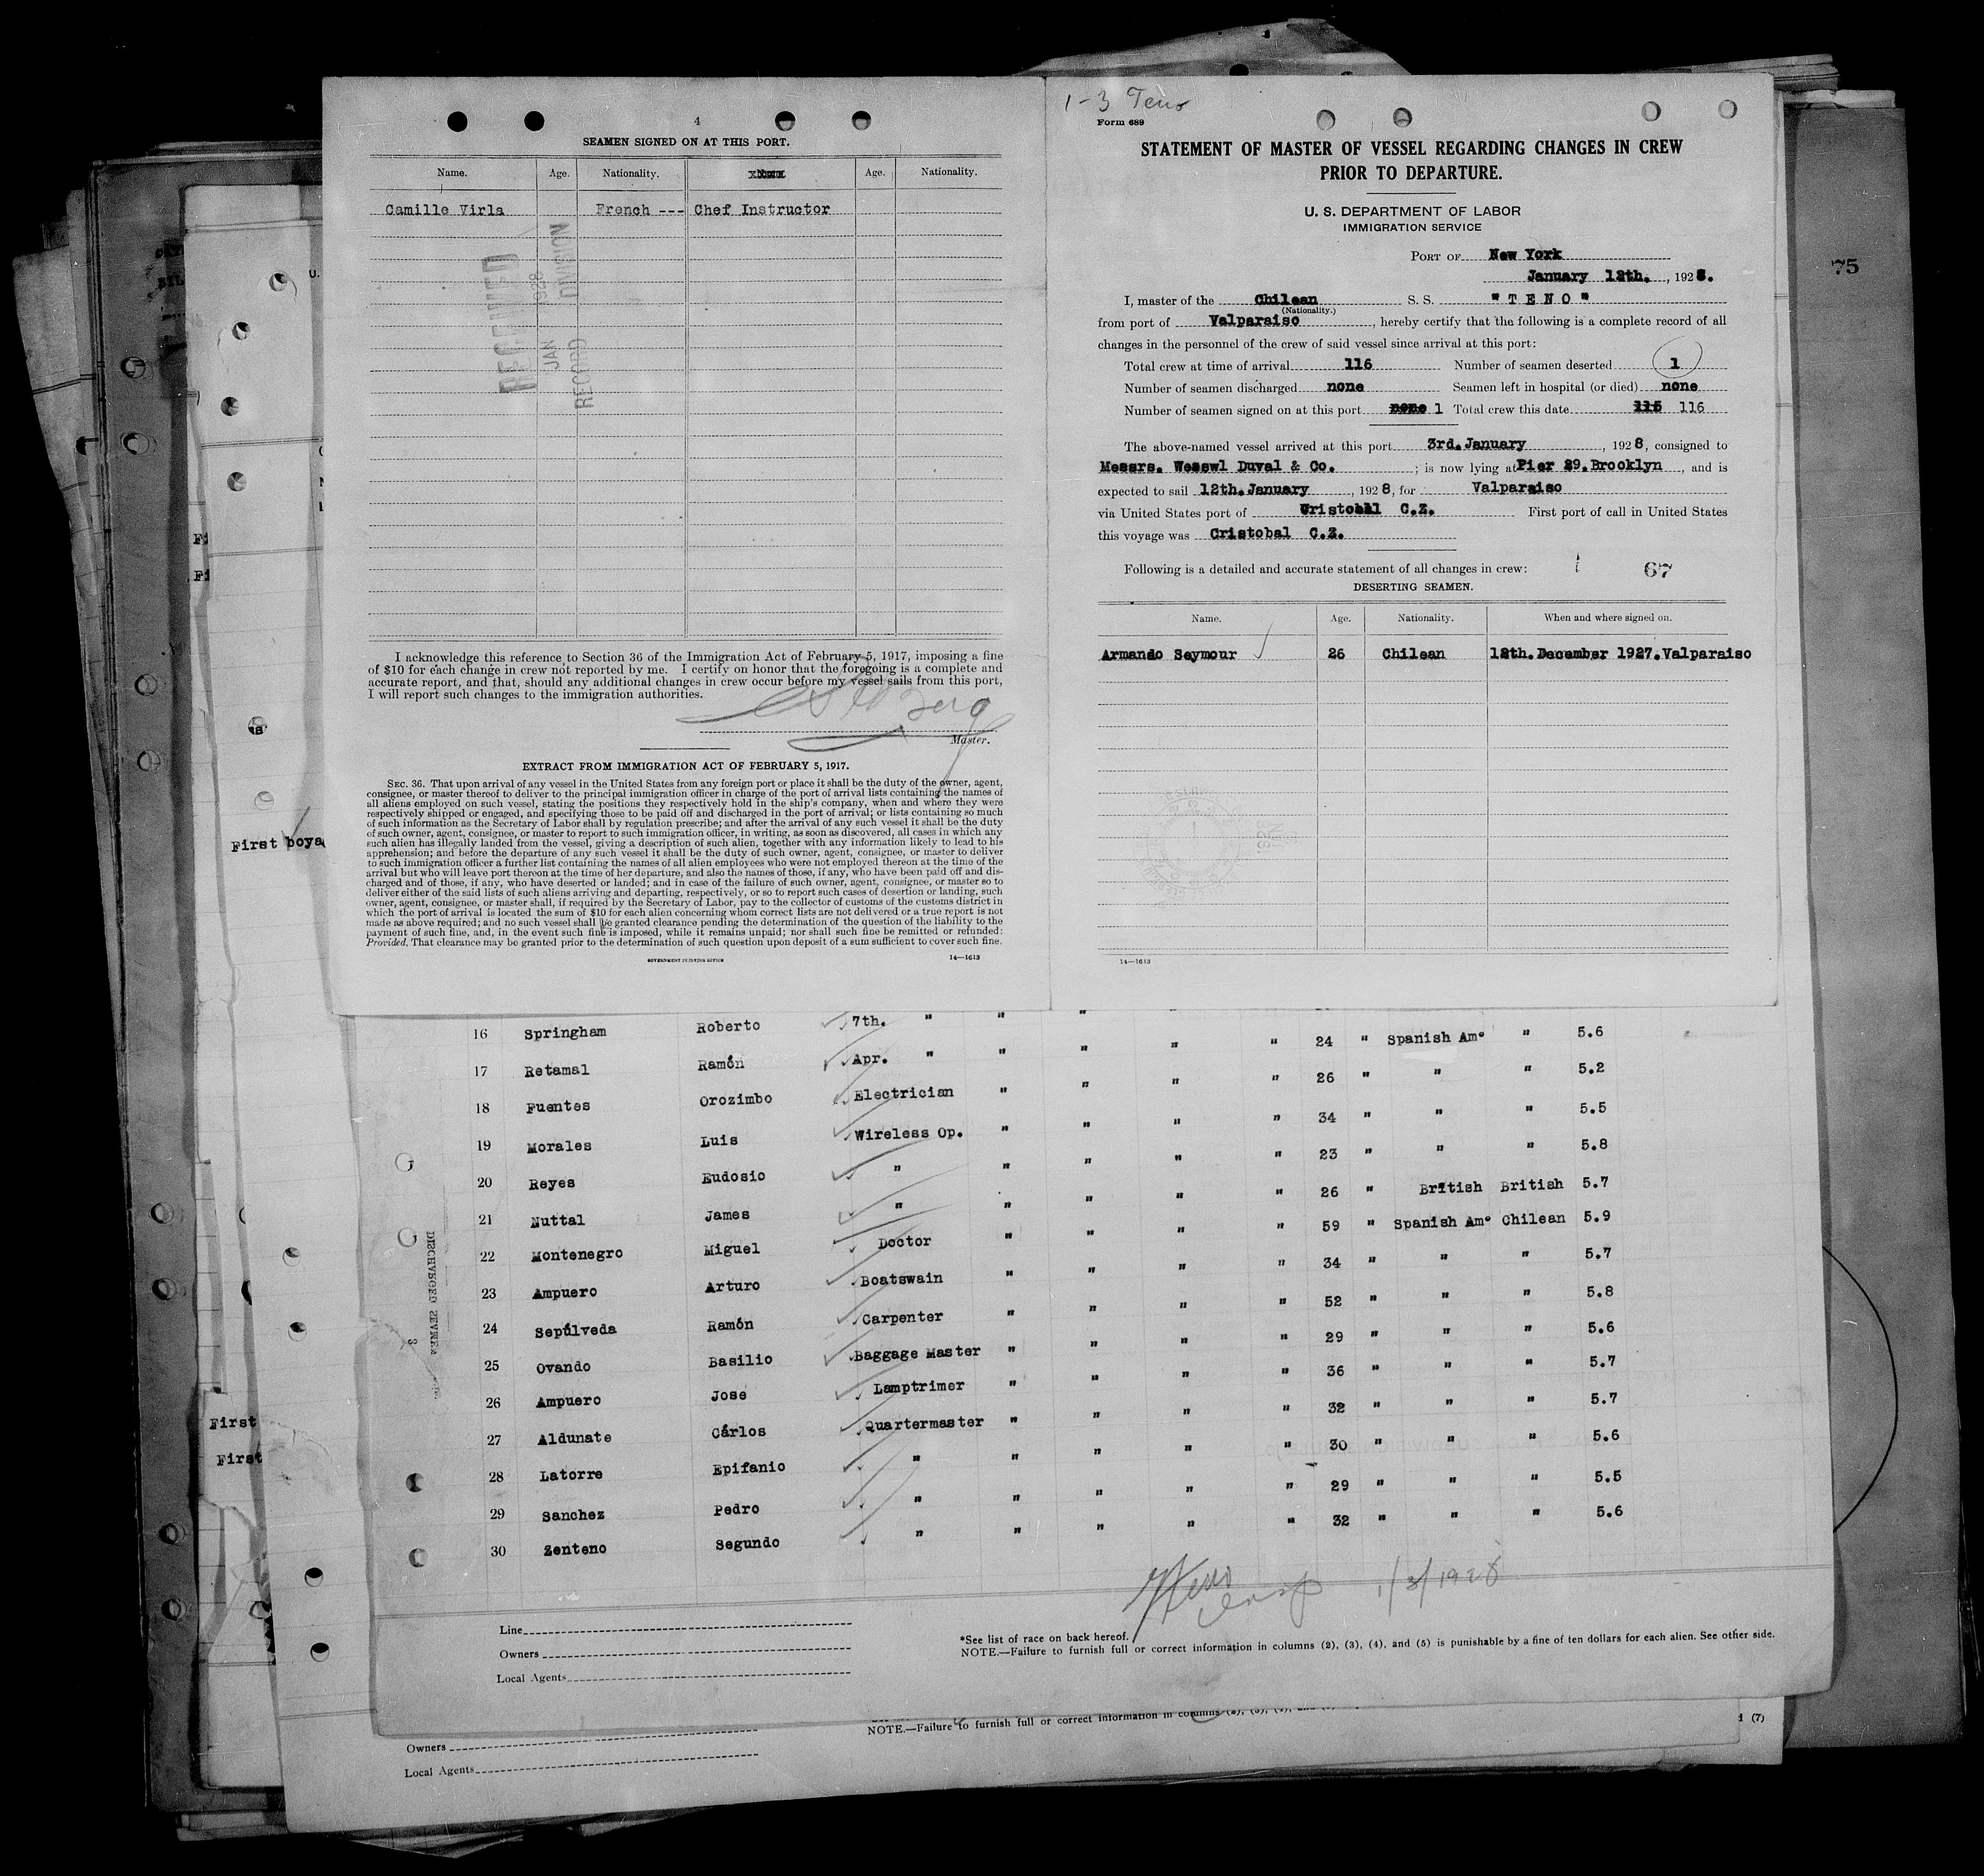 4
SEAMEN SIGNED ON AT THIS PORT.
Name. Age. Nationality. Age. Nationality.
Camille Virla French --- Chef Instructor
RECEIVED
JAN 1928
RECORD DIVISION
I acknowledge this reference to Section 36 of the Immigration Act of February 5, 1917, imposing a fine
of $10 for each change in crew not reported by me. I certify on honor that the foregoing is a complete and
accurate report, and that, should any additional changes in crew occur before my vessel sails from this port,
I will report such changes to the immigration authorities.
Master.
EXTRACT FROM IMMIGRATION ACT OF FEBRUARY 5, 1917.
SEC. 36. That upon arrival of any vessel in the United States from any foreign port or place it shall be the duty of the owner, agent,
consignee, or master thereof to deliver to the principal immigration officer in charge of the port of arrival lists containing the names of
all aliens employed on such vessel, stating the positions they respectively hold in the ship's company, when and where they were
respectively shipped or engaged, and specifying those to be paid off and discharged in the port of arrival; or lists containing so much
of such information as the Secretary of Labor shall by regulation prescribe; and after the arrival of any such vessel it shall be the duty
of such owner, agent, consignee, or master to report to such immigration officer, in writing, as soon as discovered, all cases in which any
such alien has illegally landed from the vessel, giving a description of such alien, together with any information likely to lead to his
apprehension; and before the departure of any such vessel it shall be the duty of such owner, agent, consignee, or master to deliver
to such immigration officer a further list containing the names of all alien employees who were not employed thereon at the time of the
arrival but who will leave port thereon at the time of her departure, and also the names of those, if any, who have been paid off and dis-
charged and of those, if any, who have deserted or landed; and in case of the failure of such owner, agent, consignee, or master so to
deliver either of the said lists of such aliens arriving and departing, respectively, or so to report such cases of desertion or landing, such
owner, agent, consignee, or master shall, if required by the Secretary of Labor, pay to the collector of customs of the customs district in
which the port of arrival is located the sum of $10 for each alien concerning whom correct lists are not delivered or a true report is not
made as above required; and no such vessel shall be granted clearance pending the determination of the question of the liability to the
payment of such fine, and, in the event such fine is imposed, while it remains unpaid; nor shall such fine be remitted or refunded:
Provided, That clearance may be granted prior to the determination of such question upon deposit of a sum sufficient to cover such fine.
GOVERNMENT PRINTING OFFICE 14—1613
1-3 Teno
Form 689
STATEMENT OF MASTER OF VESSEL REGARDING CHANGES IN CREW
PRIOR TO DEPARTURE.
U. S. DEPARTMENT OF LABOR
IMMIGRATION SERVICE
PORT OF New York
January 12th. , 1928.
I, master of the Chilean S. S. "TENO"
(Nationality.)
from port of Valparaiso , hereby certify that the following is a complete record of all
changes in the personnel of the crew of said vessel since arrival at this port:
Total crew at time of arrival 116 Number of seamen deserted 1
Number of seamen discharged none Seamen left in hospital (or died) none
Number of seamen signed on at this port none 1 Total crew this date 115 116
The above-named vessel arrived at this port 3rd.January , 1928, consigned to
Messrs. Wesswl Duval & Co. ; is now lying at Pier 29.Brooklyn , and is
expected to sail 12th.January , 1928, for Valparaiso
via United States port of Cristobal C.Z. First port of call in United States
this voyage was Cristobal C.Z.
Following is a detailed and accurate statement of all changes in crew: 67
DESERTING SEAMEN.
Name. Age. Nationality. When and where signed on.
Armando Seymour 26 Chilean 12th.December 1927.Valparaiso
14—1613
75
First boya
First
First
16 Springham Roberto 7th. " " "
17 Retamal Ramón Apr. " " " " " 24 " Spanish Am° " 5.6
18 Fuentes Orozimbo Electrician " " " " 26 " " " 5.2
19 Morales Luis Wireless Op. " " " " 34 " " " 5.5
20 Reyes Eudosio " " " " " 23 " " " 5.8
21 Nuttal James " " " " " 26 " British British 5.7
22 Montenegro Miguel Doctor " " " " 59 " Spanish Am° Chilean 5.9
23 Ampuero Arturo Boatswain " " " " 34 " " " 5.7
24 Sepúlveda Ramón Carpenter " " " " 52 " " " 5.8
25 Ovando Basilio Baggage Master " " " " 29 " " " 5.6
26 Ampuero Jose Lamptrimer " " " " 36 " " " 5.7
27 Aldunate Cárlos Quartermaster " " " " 32 " " " 5.7
28 Latorre Epifanio " " " " " 30 " " " 5.6
29 Sanchez Pedro " " " " " 29 " " " 5.5
30 Zenteno Segundo " " " " " 32 " " " 5.6
DISCHARGED SEAMEN
3
1/3/1928
Line
Owners
Local Agents
*See list of race on back hereof.
NOTE.—Failure to furnish full or correct information in columns (2), (3), (4), and (5) is punishable by a fine of ten dollars for each alien. See other side.
NOTE.—Failure to furnish full or correct information in columns
(7)
Owners
Local Agents